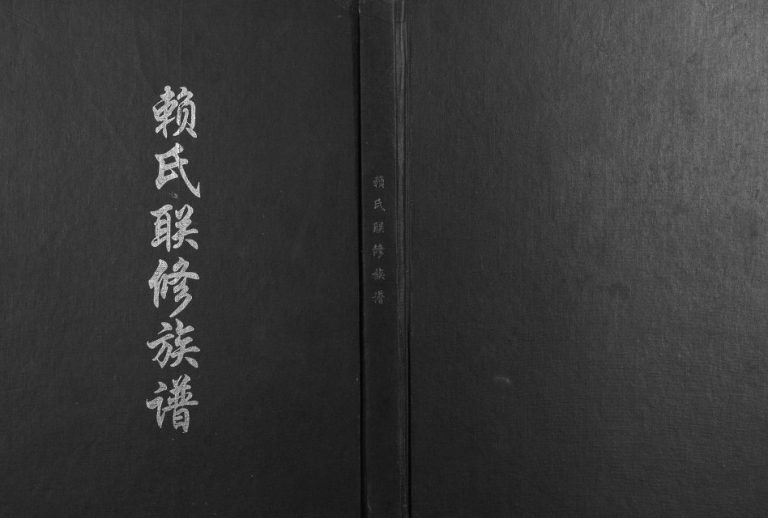 赖氏联修族谱
赖氏联修族谱